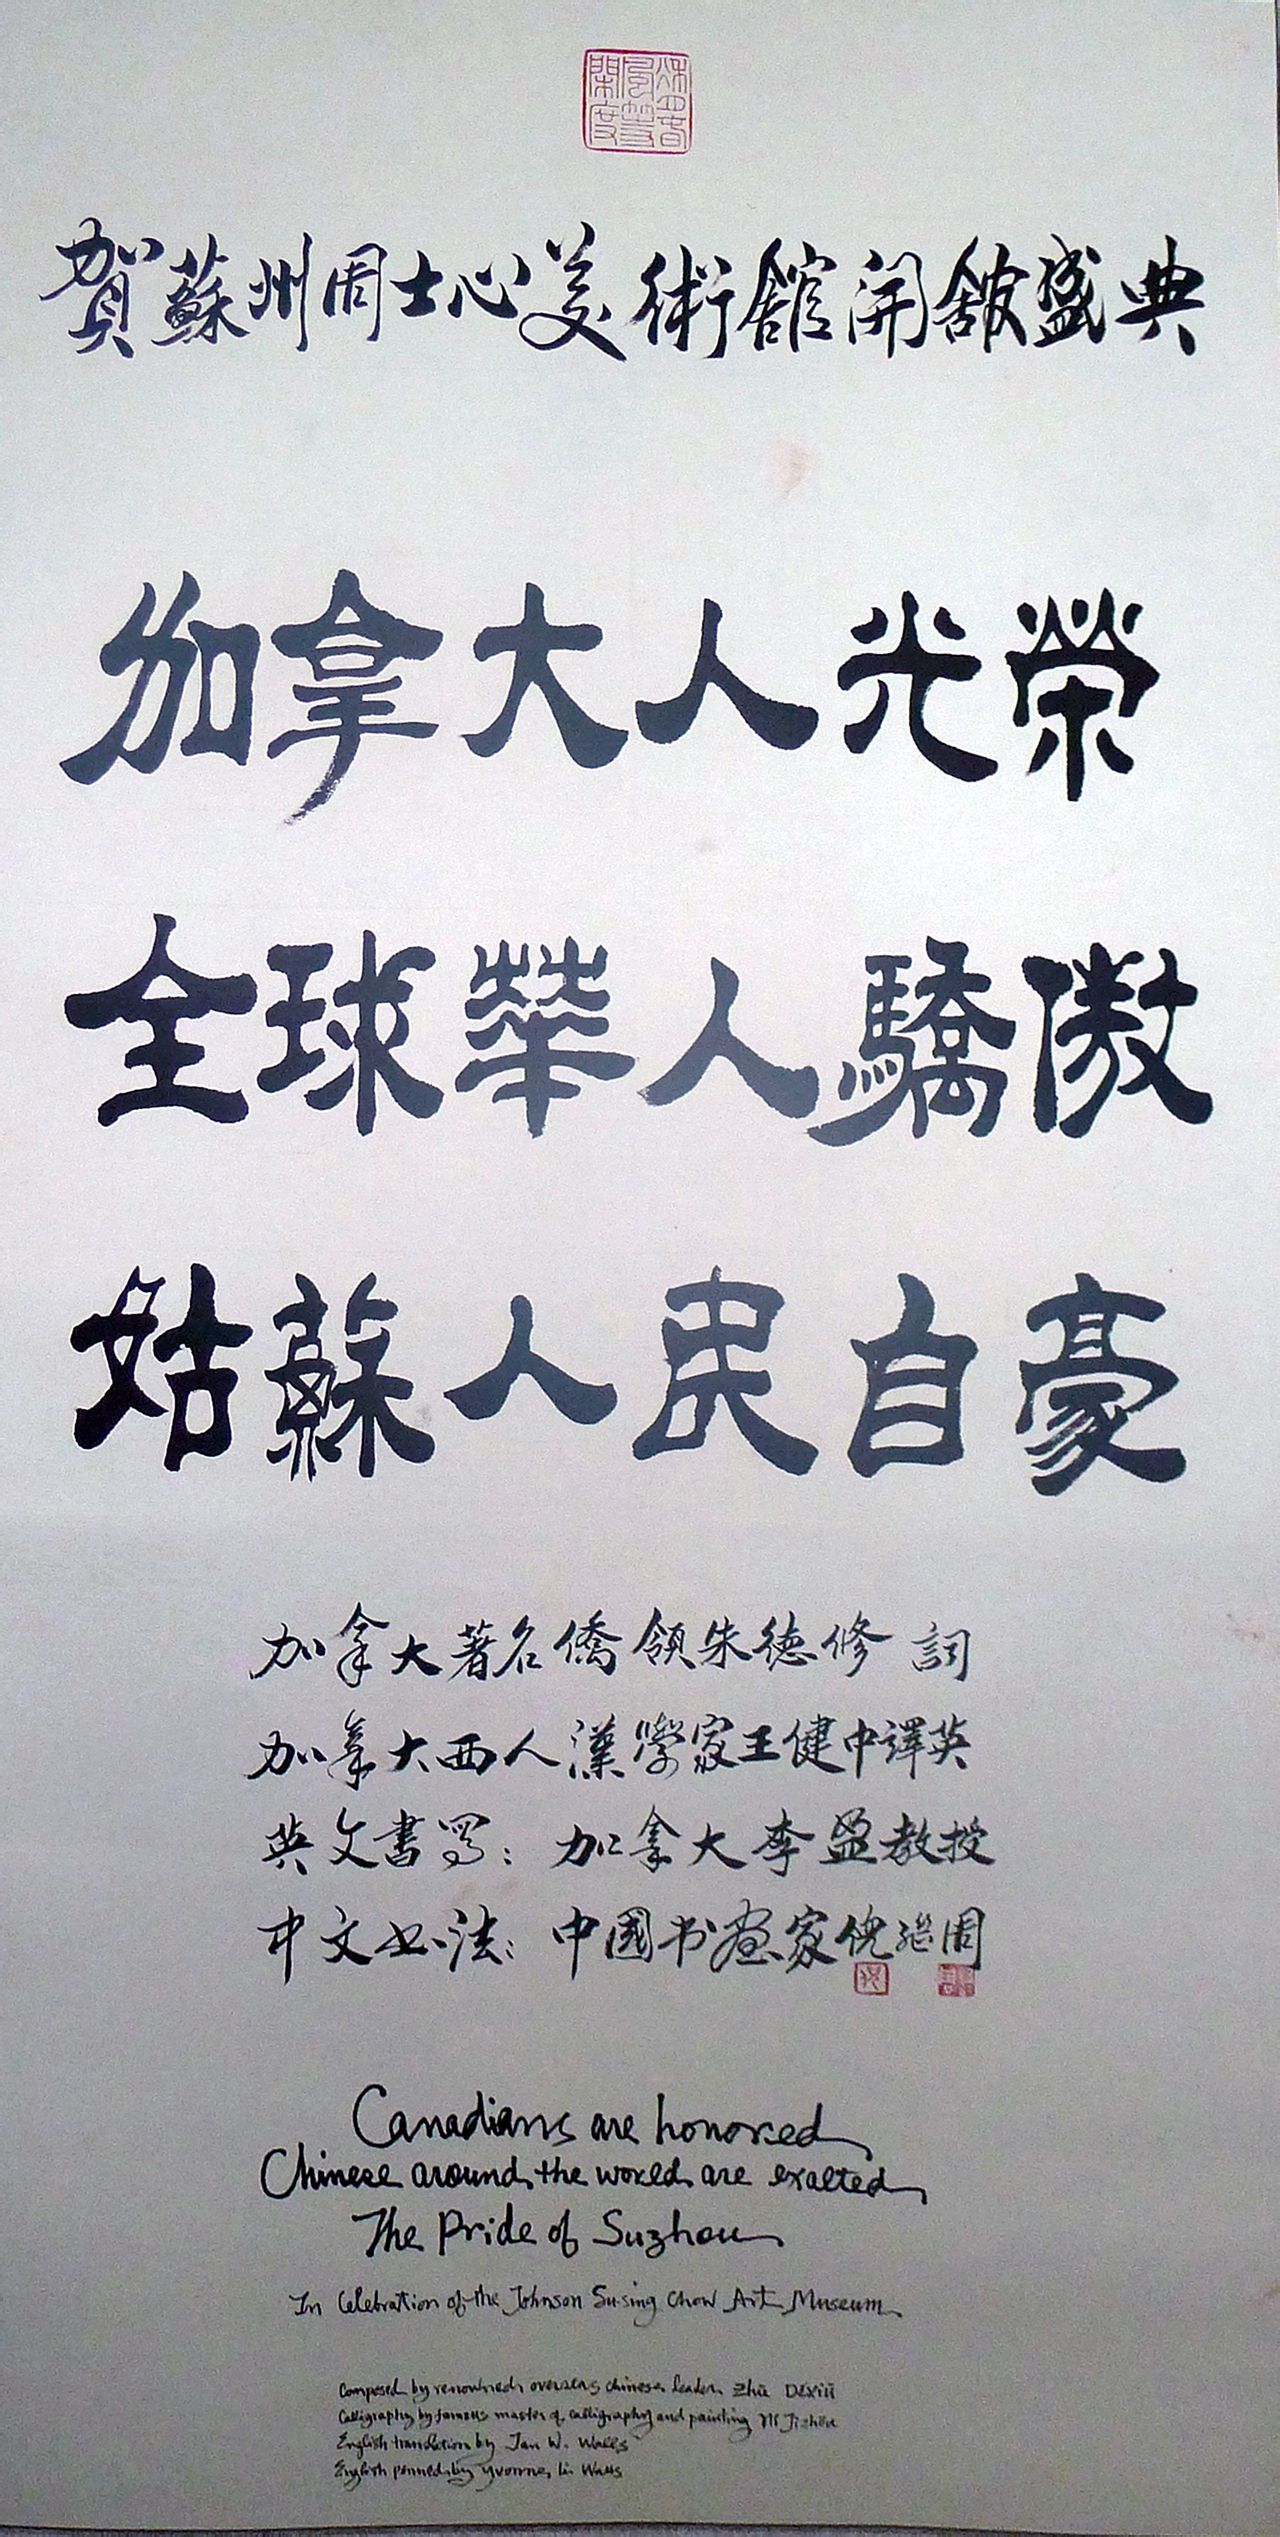 賀蘇州周士心美術館開館盛典
加拿大人光荣
全球華人驕傲
姑蘇人民自豪
加拿大著名僑領朱德修 詞
加拿大西人漢學家王健中譯英
英文書寫：加拿大李盈教授
中文书法：中國书画家倪继周
Canadians are honored
Chinese around the world are exalted
The Pride of Suzhou
In Celebration of the Johnson Su-sing Chow Art Museum
Composed by renowned overseas chinese leader Zhū Déxiū
Calligraphy by famous master of calligraphy and painting Ní Jìzhōu
English translation by Jan W. Walls
English penned by Yvonne Li Walls